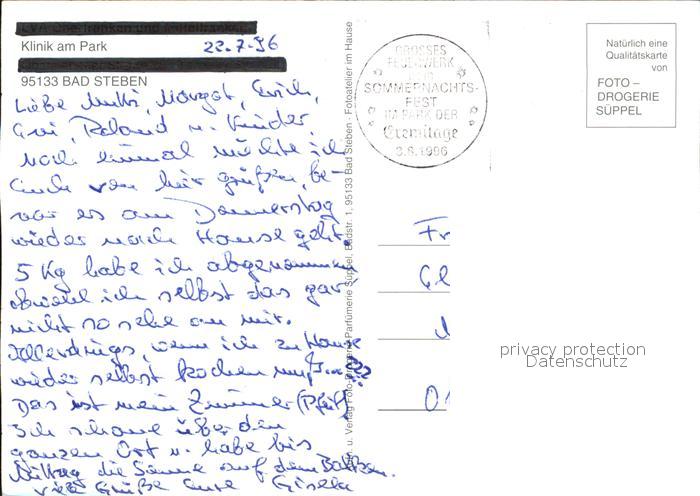 Klinik am Park
22.7.96
95133 BAD STEBEN
Liebe Mutti, Margot, Erich,
Evi, Roland u. Kinder,
noch einmal möchte ich
Euch von hier grüßen, be-
vor es am Donnerstag
wieder nach Hause geht.
5 Kg habe ich abgenommen
obwohl ich selbst das gar
nicht so sehe an mir.
Allerdings, wenn ich zu Hause
wieder selbst kochen muß ???
Das ist mein Zimmer (Pfeil)
Ich schaue über den
ganzen Ort u. habe bis
Mittag die Sonne auf dem Balkon.
Viele Grüße Eure Gisela
u. Verlag Foto-Drogerie Parfümerie Süppel, Badstr. 1, 95133 Bad Steben - Fotoatelier im Hause
GROSSES
FEUERWERK
SOMMERNACHTS-
FEST
IM PARK DER
Eremitage
3.8.1996
Natürlich eine
Qualitätskarte
von
FOTO –
DROGERIE
SÜPPEL
Fr
privacy protection
Datenschutz